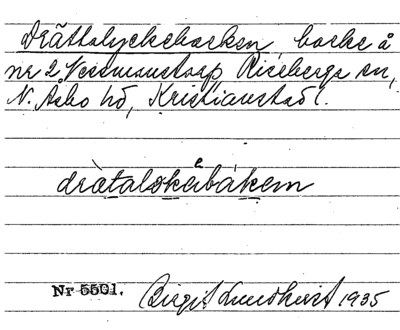 Drättalyckebacken, backe å
nr 2 Vesmanstorp Riseberga sn,
N. Åsbo hd, Kristianstad l.
e
drætalskabákem
Nr 5501. Birgit Lundkvist 1935